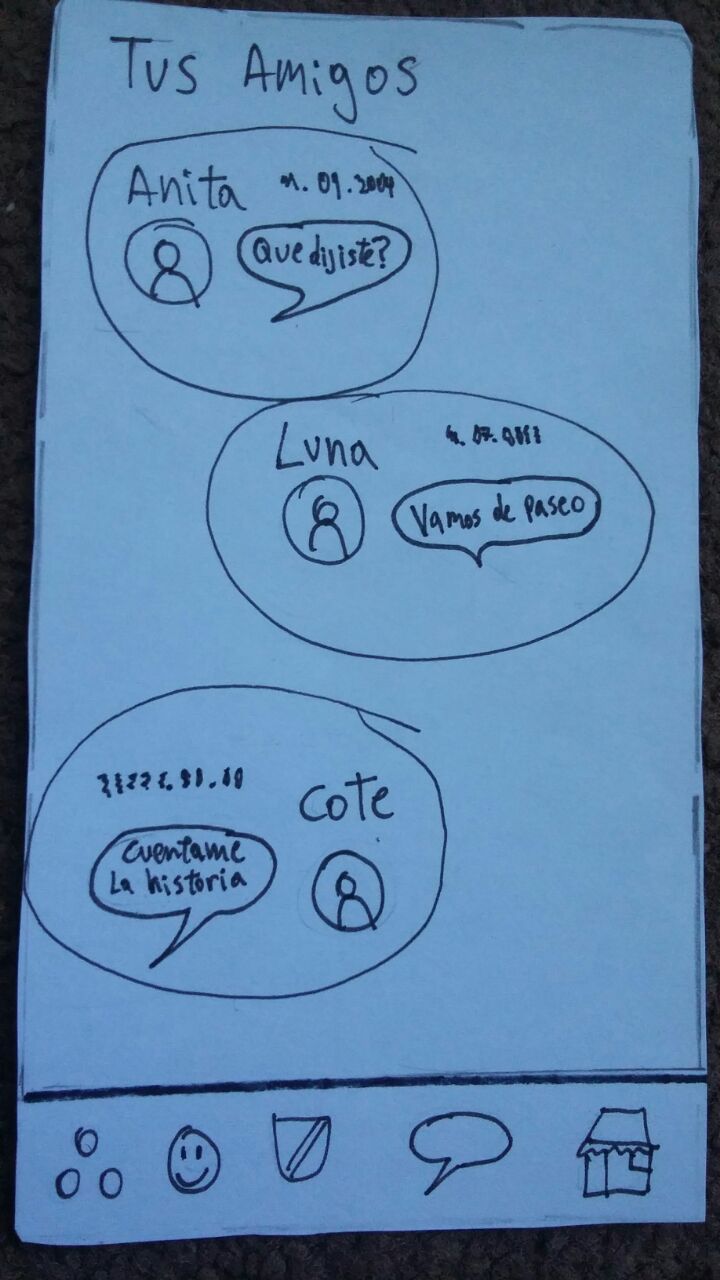 Tus Amigos
Anita
Que dijiste?
Luna
Vamos de paseo
Cote
cuentame
La historia